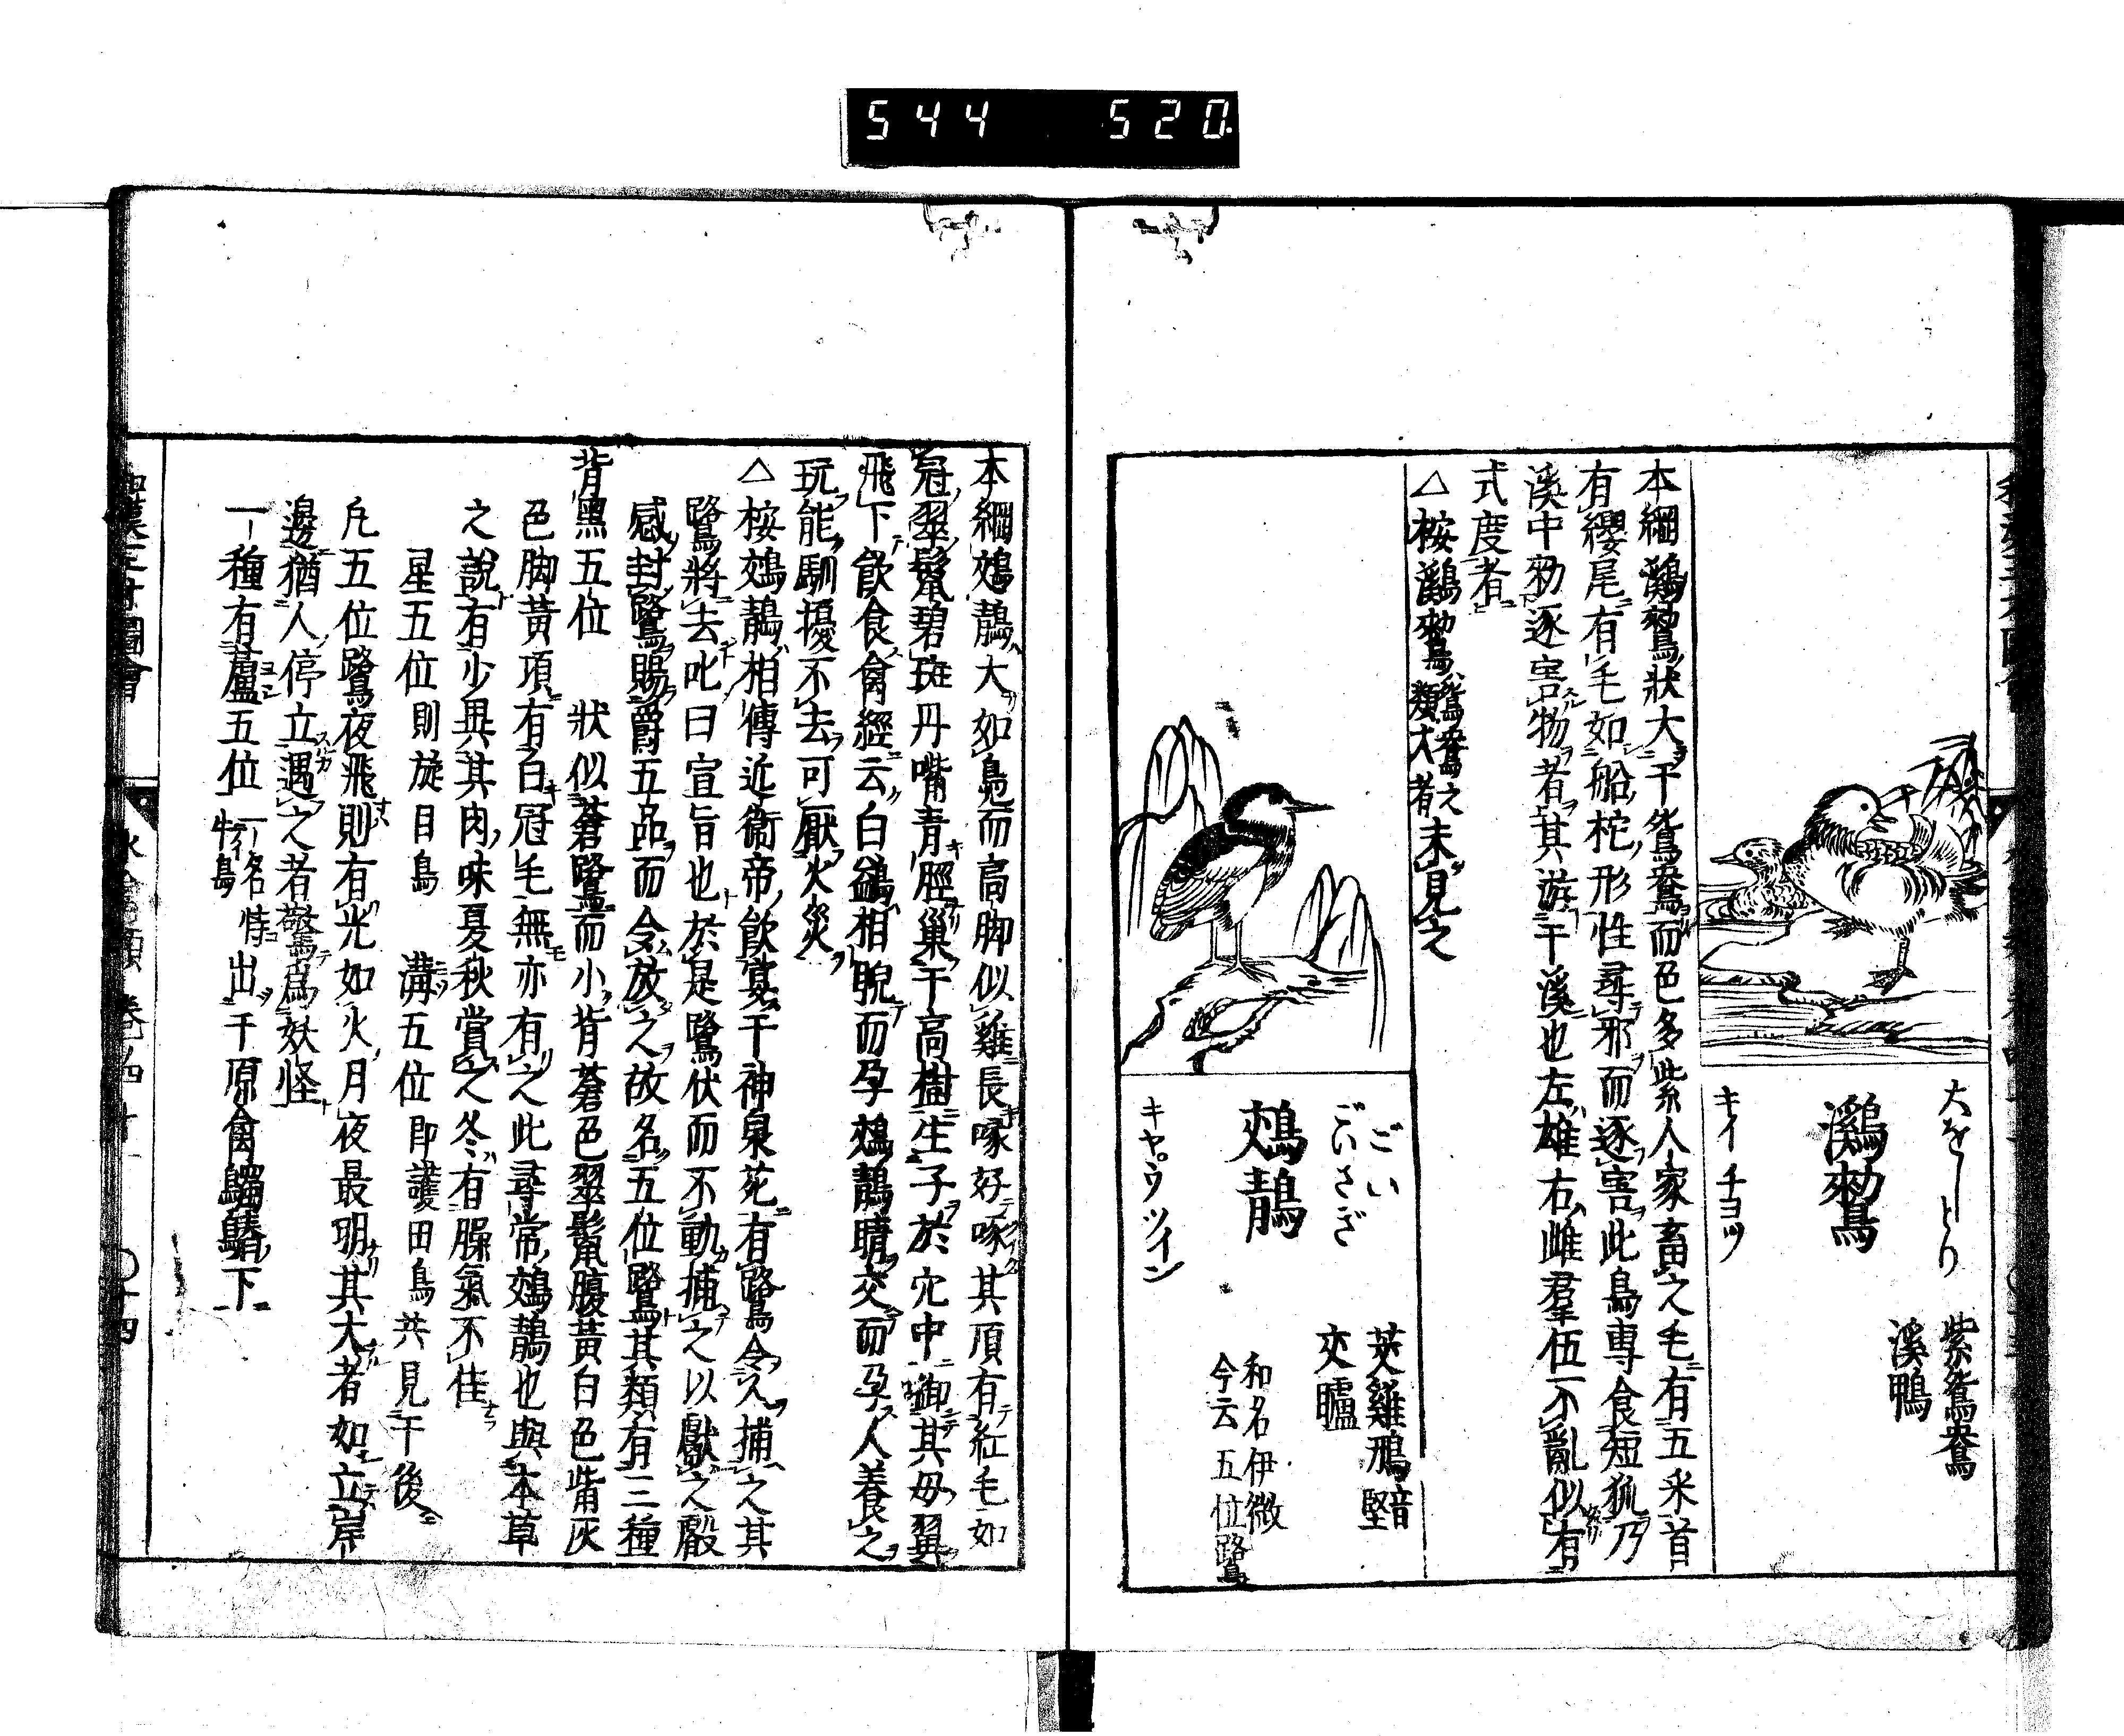 544 520
大をしどり
紫鴛鴦
溪鴨
鸂鷘
キイ チヨツ
本綱鸂鷘狀大于鴛鴦而色多紫人家畜之毛有五采首
有纓尾有毛如船柁形性尋邪而逐害此鳥專食短狐乃
溪中勑逐害物者其游于溪也左雄右雌羣伍不亂似有
式度者
△桉鸂鷘鴛鴦之類大者未見之
ごい
ごいさぎ
鵁鶄
キヤウ ツイン
茭雞 鳽音堅
交矑
和名伊微
今云五位鷺
本綱鵁鶄大如鳬而高脚似雞長喙好啄其頂有紅毛如
冠翠鬛碧斑丹嘴青脛巢于高樹生子於穴中啣其母翼
飛下飲食禽經云白鷁相睨而孕鵁鶄睛交而孕人養之
玩能馴擾不去可厭火災
△桉鵁鶄相傳近衞帝飲宴于神泉苑有鷺令人捕之其
鷺將去叱曰宣旨也於是鷺伏而不動捕之以獻之殿
感封鷺賜爵五品而令放之故名五位鷺其類有三種
背黑五位 狀似蒼鷺而小背蒼色翠鬛腹黃白色觜灰
色脚黃項有白冠毛無亦有之此尋常鵁鶄也與本草
之說有少異其肉味夏秋賞之冬有臊氣不佳
星五位則旋目鳥 溝五位即護田鳥共見于後
凡五位鷺夜飛則有光如火月夜最明其大者如立岸
邊猶人停立遇之者驚爲妖怪
一種有蘆五位一名特牛鳥出于原禽鸀鳿下
和漢三才圖會
水禽類 卷四十一
〇十四